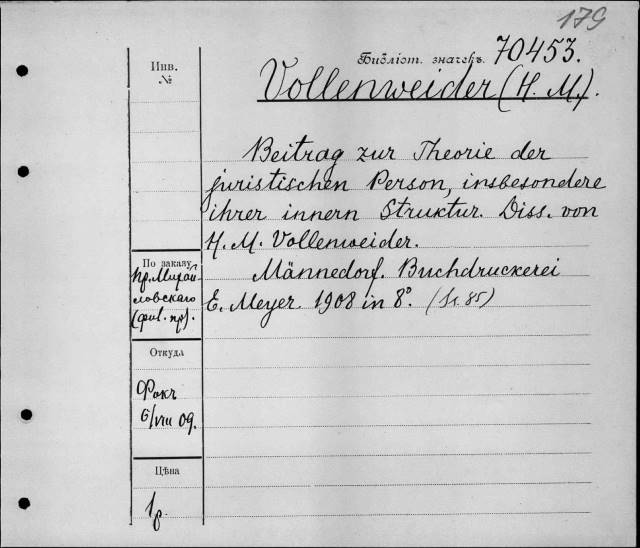 179
Библіот. значекъ. 70453.
Инв.
№
Vollenweider (H. M.).
Beitrag zur Theorie der
juristischen Person, insbesondere
ihrer innern Struktur. Diss. von
H. M. Vollenweider.
Männedorf. Buchdruckerei
E. Meyer. 1908 in 8°. (St. 85)
По заказу
пр. Михай-
ловскаго
(фил. пр).
Откуда
Фокъ
6/VIII 09.
Цѣна
1 р.